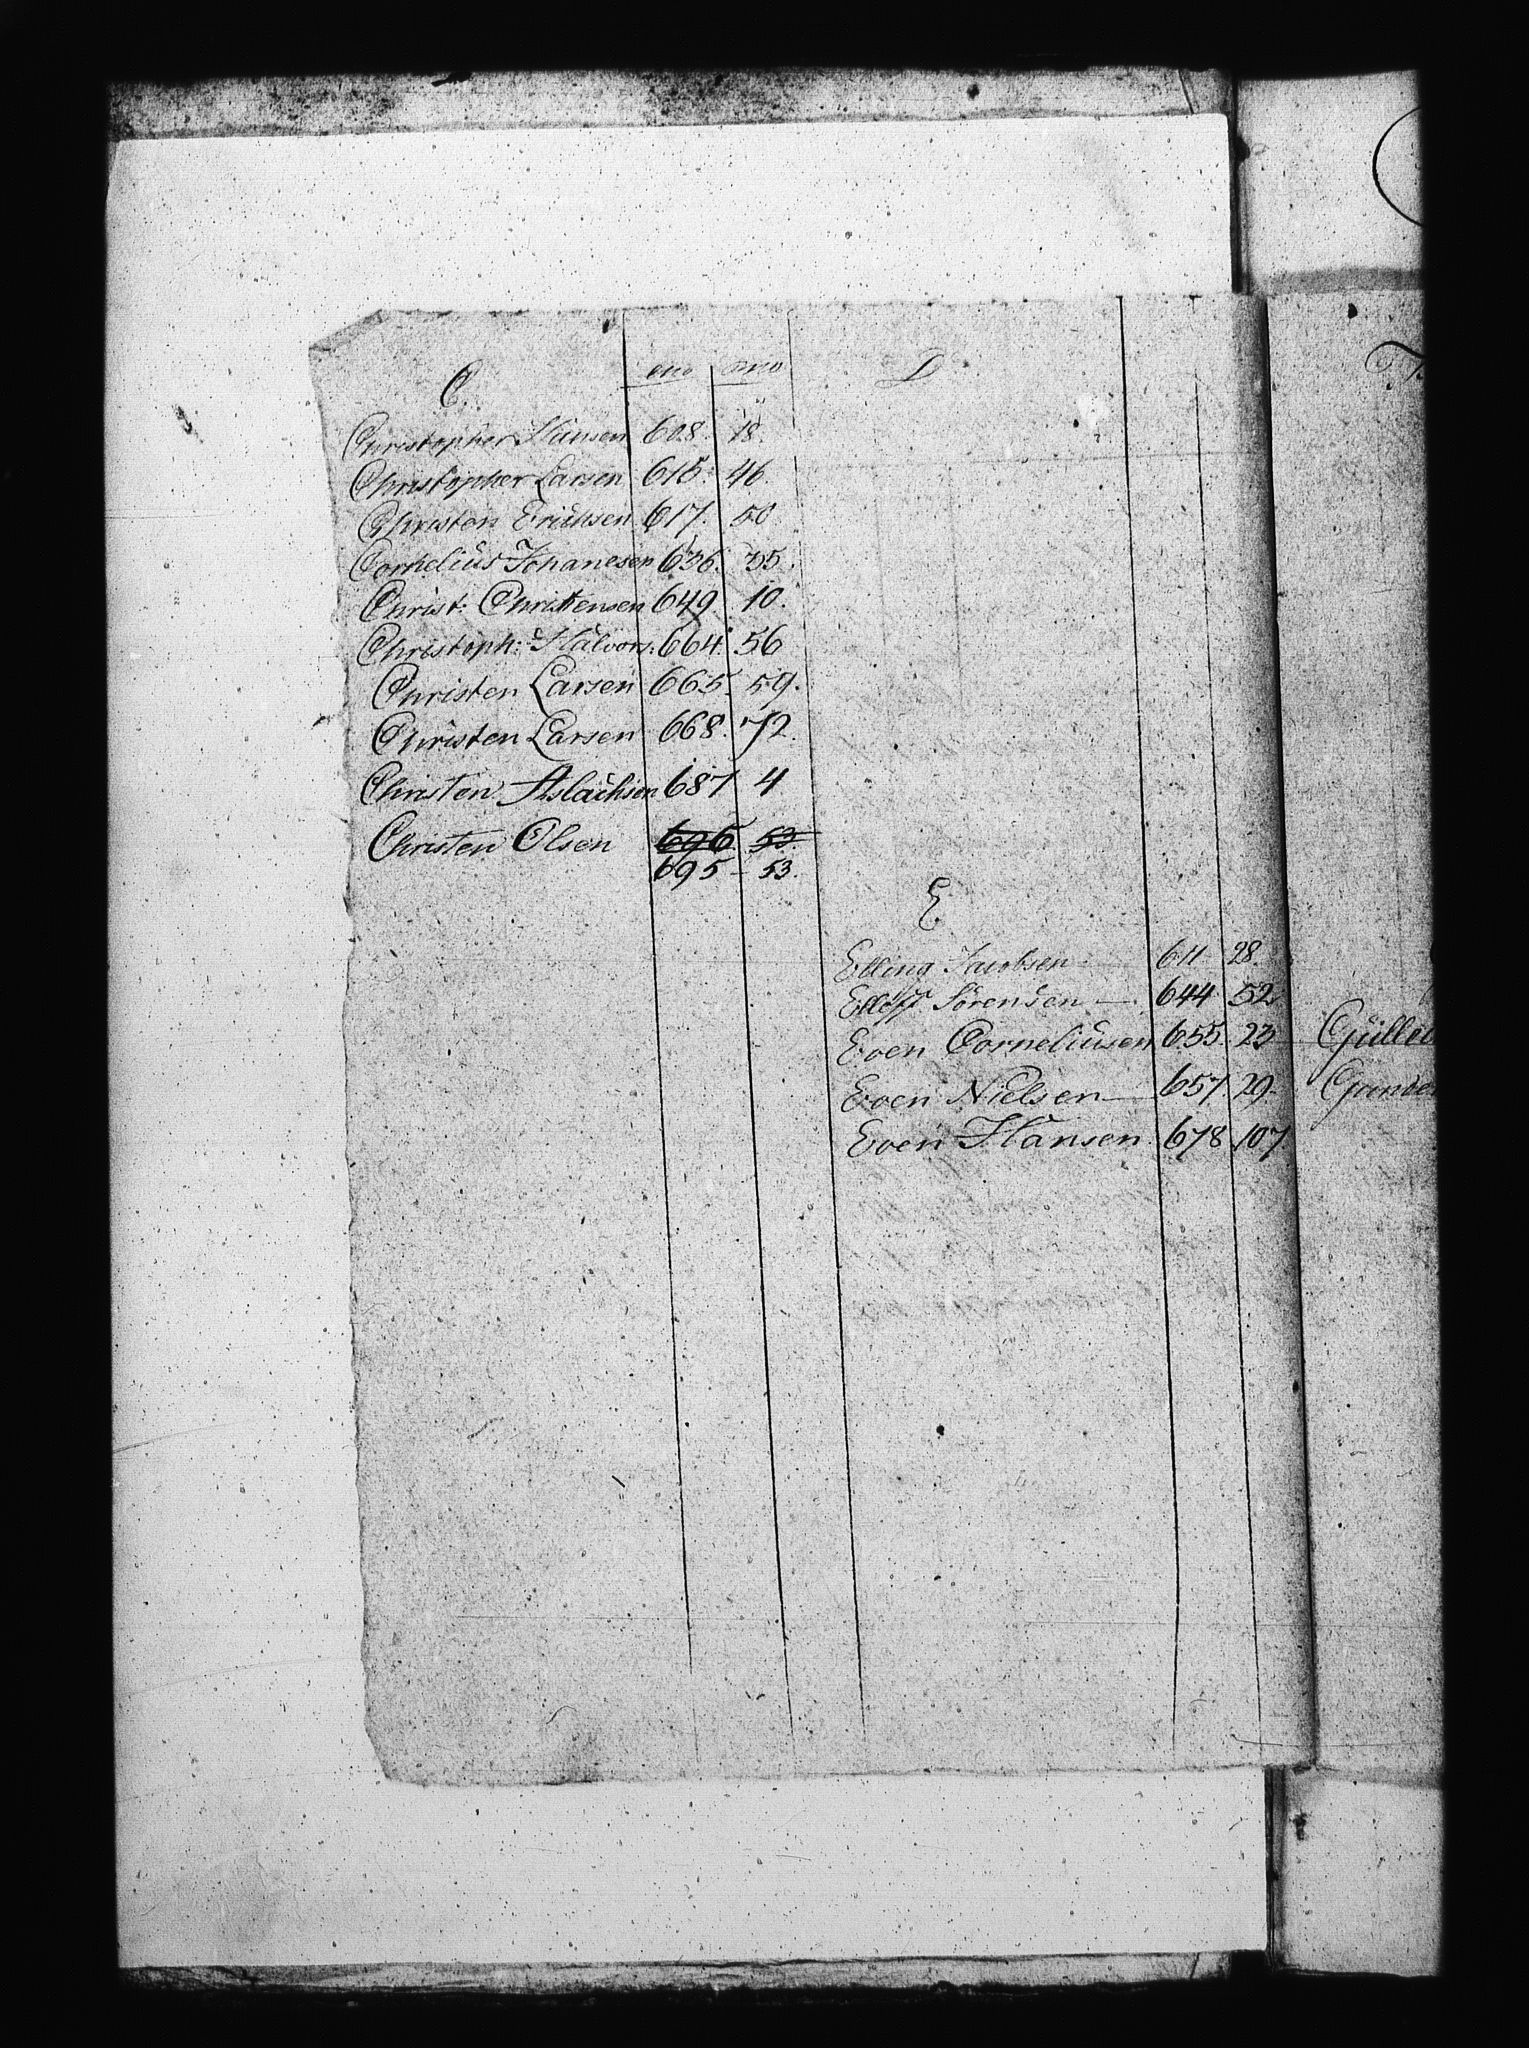 C.
Christopher Hansen 608. 18.
Christopher Larsen 615. 46.
Christen Erichsen 617. 50
Cornelius Johanesen 636. 35.
Christ: Christensen 649 10.
Christoph: Halvors: 664. 56
Christen Larsen 665. 59.
Christen Larsen 668. 72.
Christen Aslachsen 687 4
Christen Olsen 696 53.
695 - 53.
D
E.
Elling Jacobsen 611 28.
Elloff Sörensen — 644 52
Even Corneliusen 655. 23
Even Nielsen — 657. 29.
Even Hansen 678 107